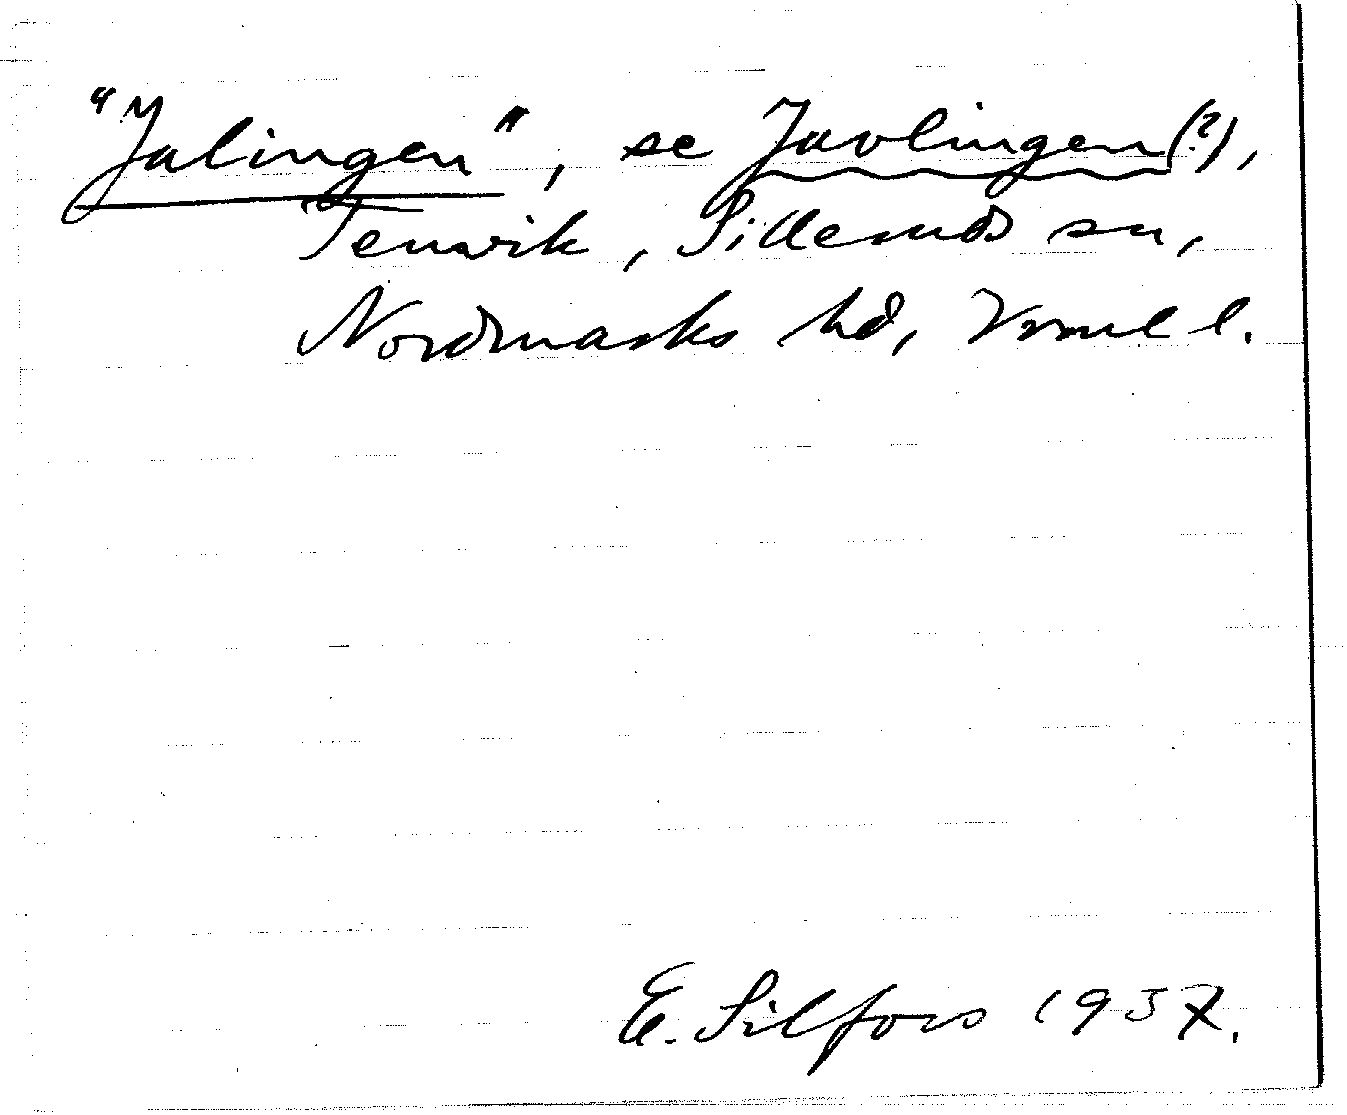 "Jalingen", se Javlingen(?),
Tenvik, Sillerud sn,
Nordmarks hd, Vrml l.
E. Silfors 1937.